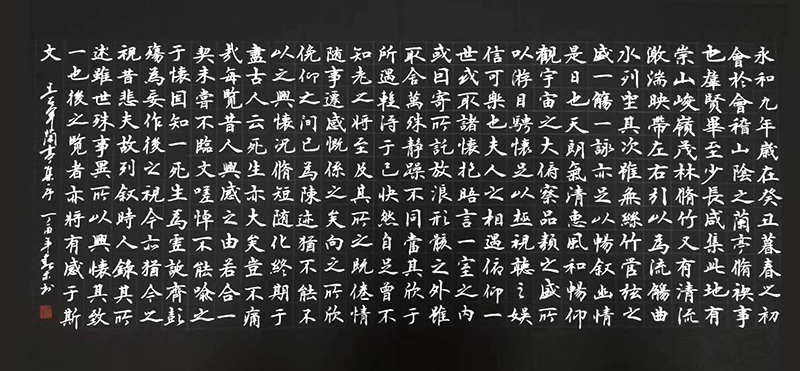 永和九年歲在癸丑暮春之初
會於會稽山陰之蘭亭脩禊事
也羣賢畢至少長咸集此地有
崇山峻嶺茂林脩竹又有清流
激湍映帶左右引以為流觴曲
水列坐其次雖無絲竹管弦之
盛一觴一詠亦足以暢叙幽情
是日也天朗氣清惠風和暢仰
觀宇宙之大俯察品類之盛所
以游目騁懷足以極視聽之娛
信可樂也夫人之相遇俯仰一
世或取諸懷抱晤言一室之內
或因寄所託放浪形骸之外雖
取舍萬殊靜躁不同當其欣于
所遇暫得于己快然自足曾不
知老之將至及其所之既倦情
隨事遷感慨係之矣向之所欣
俛仰之間已為陳迹猶不能不
以之興懷況脩短隨化終期于
盡古人云死生亦大矣豈不痛
哉每覽昔人興感之由若合一
契未嘗不臨文嗟悼不能喻之
于懷固知一死生為虛誕齊彭
殤為妄作後之視今亦猶今之
視昔悲夫故列叙時人錄其所
述雖世殊事異所以興懷其致
一也後之覽者亦將有感于斯
文 王右軍蘭亭集序 丁酉年